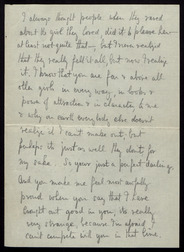 I always thought people, when they raved
about the girl they loved, did it to please her –
at least not quite that –, but I never realized
that they really felt it all, but now I realize
it. I know that you are far & above all
other girls in every way, in looks &
power of attraction & in character to me
& why on earth everybody else doesn't
realize it I can't make out, but
perhaps it's just as well they don't for
my sake. So your just a perfect darling.
And you make me feel most awfully
proud when you say that I have
brought out good in you; it's really
very strange, because I'm afraid I
can't compete with you in that line.